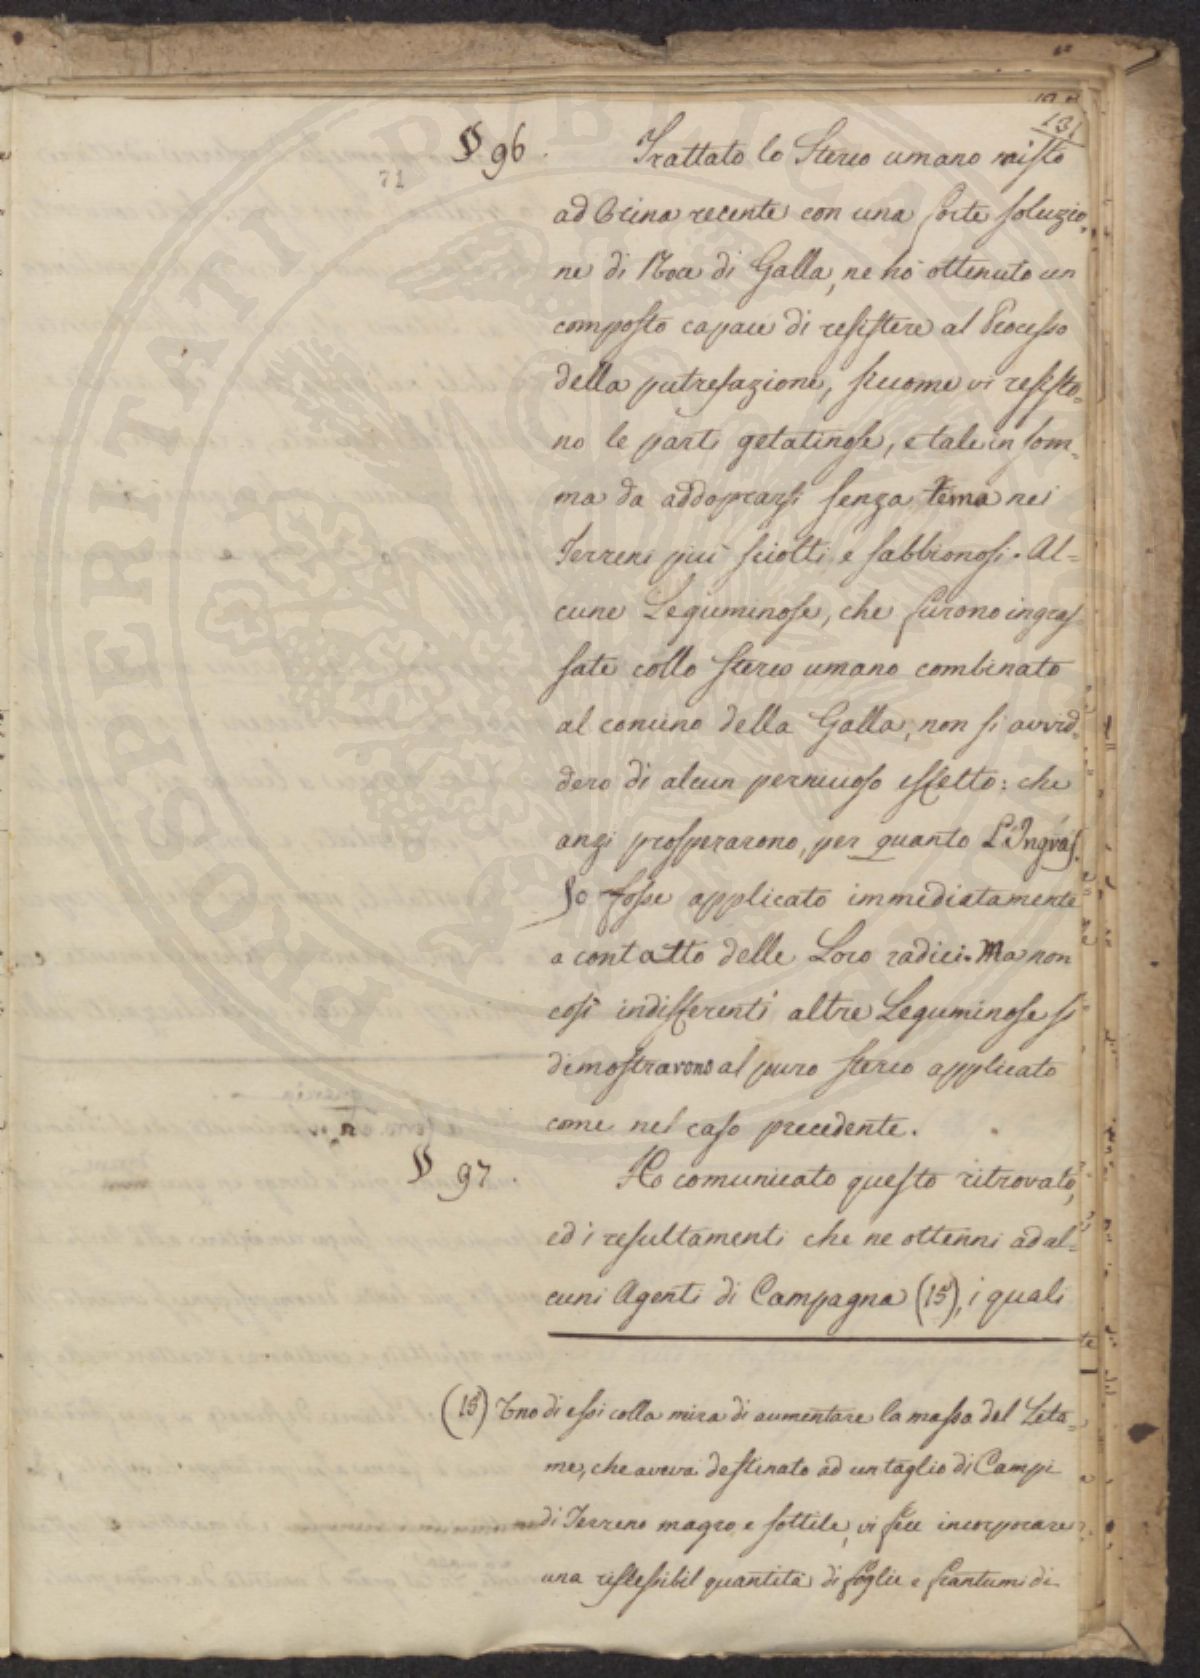 131
§ 96. Trattato lo Sterco umano misto
71
ad Orina recente con una forte soluzio=
ne di Noce di Galla, ne hò ottenuto un
composto capace di resistere al Processo
della putrefazione, siccome vi resisto=
no le parti gelatinose, e tale in som=
ma da addoprarsi senza tema nei
Terreni più sciolti, e sabbionosi. Al=
cune Leguminose, che furono ingras=
sate collo sterco umano combinato
al concino della Galla, non si avvid=
dero di alcun pernicioso effetto: che
anzi prosperarono, per quanto L'Ingras=
so fosse applicato immediatamente
a contatto delle Loro radici. Ma non
così indifferenti altre Leguminose si
dimostrarono al puro sterco applicato
come nel caso precedente.
§ 97. Ho comunicato questo ritrovato,
ed i resultamenti che ne ottenni ad al=
cuni Agenti di Campagna (15), i quali
(15) Uno di essi colla mira di aumentare la massa del Leta=
me, che aveva destinato ad un taglio di Campi
di Terreno magro e sottile, vi fece incorporare
una riflessibil quantità di foglie e frantumi di
PROSPERITATI PUBLICAE